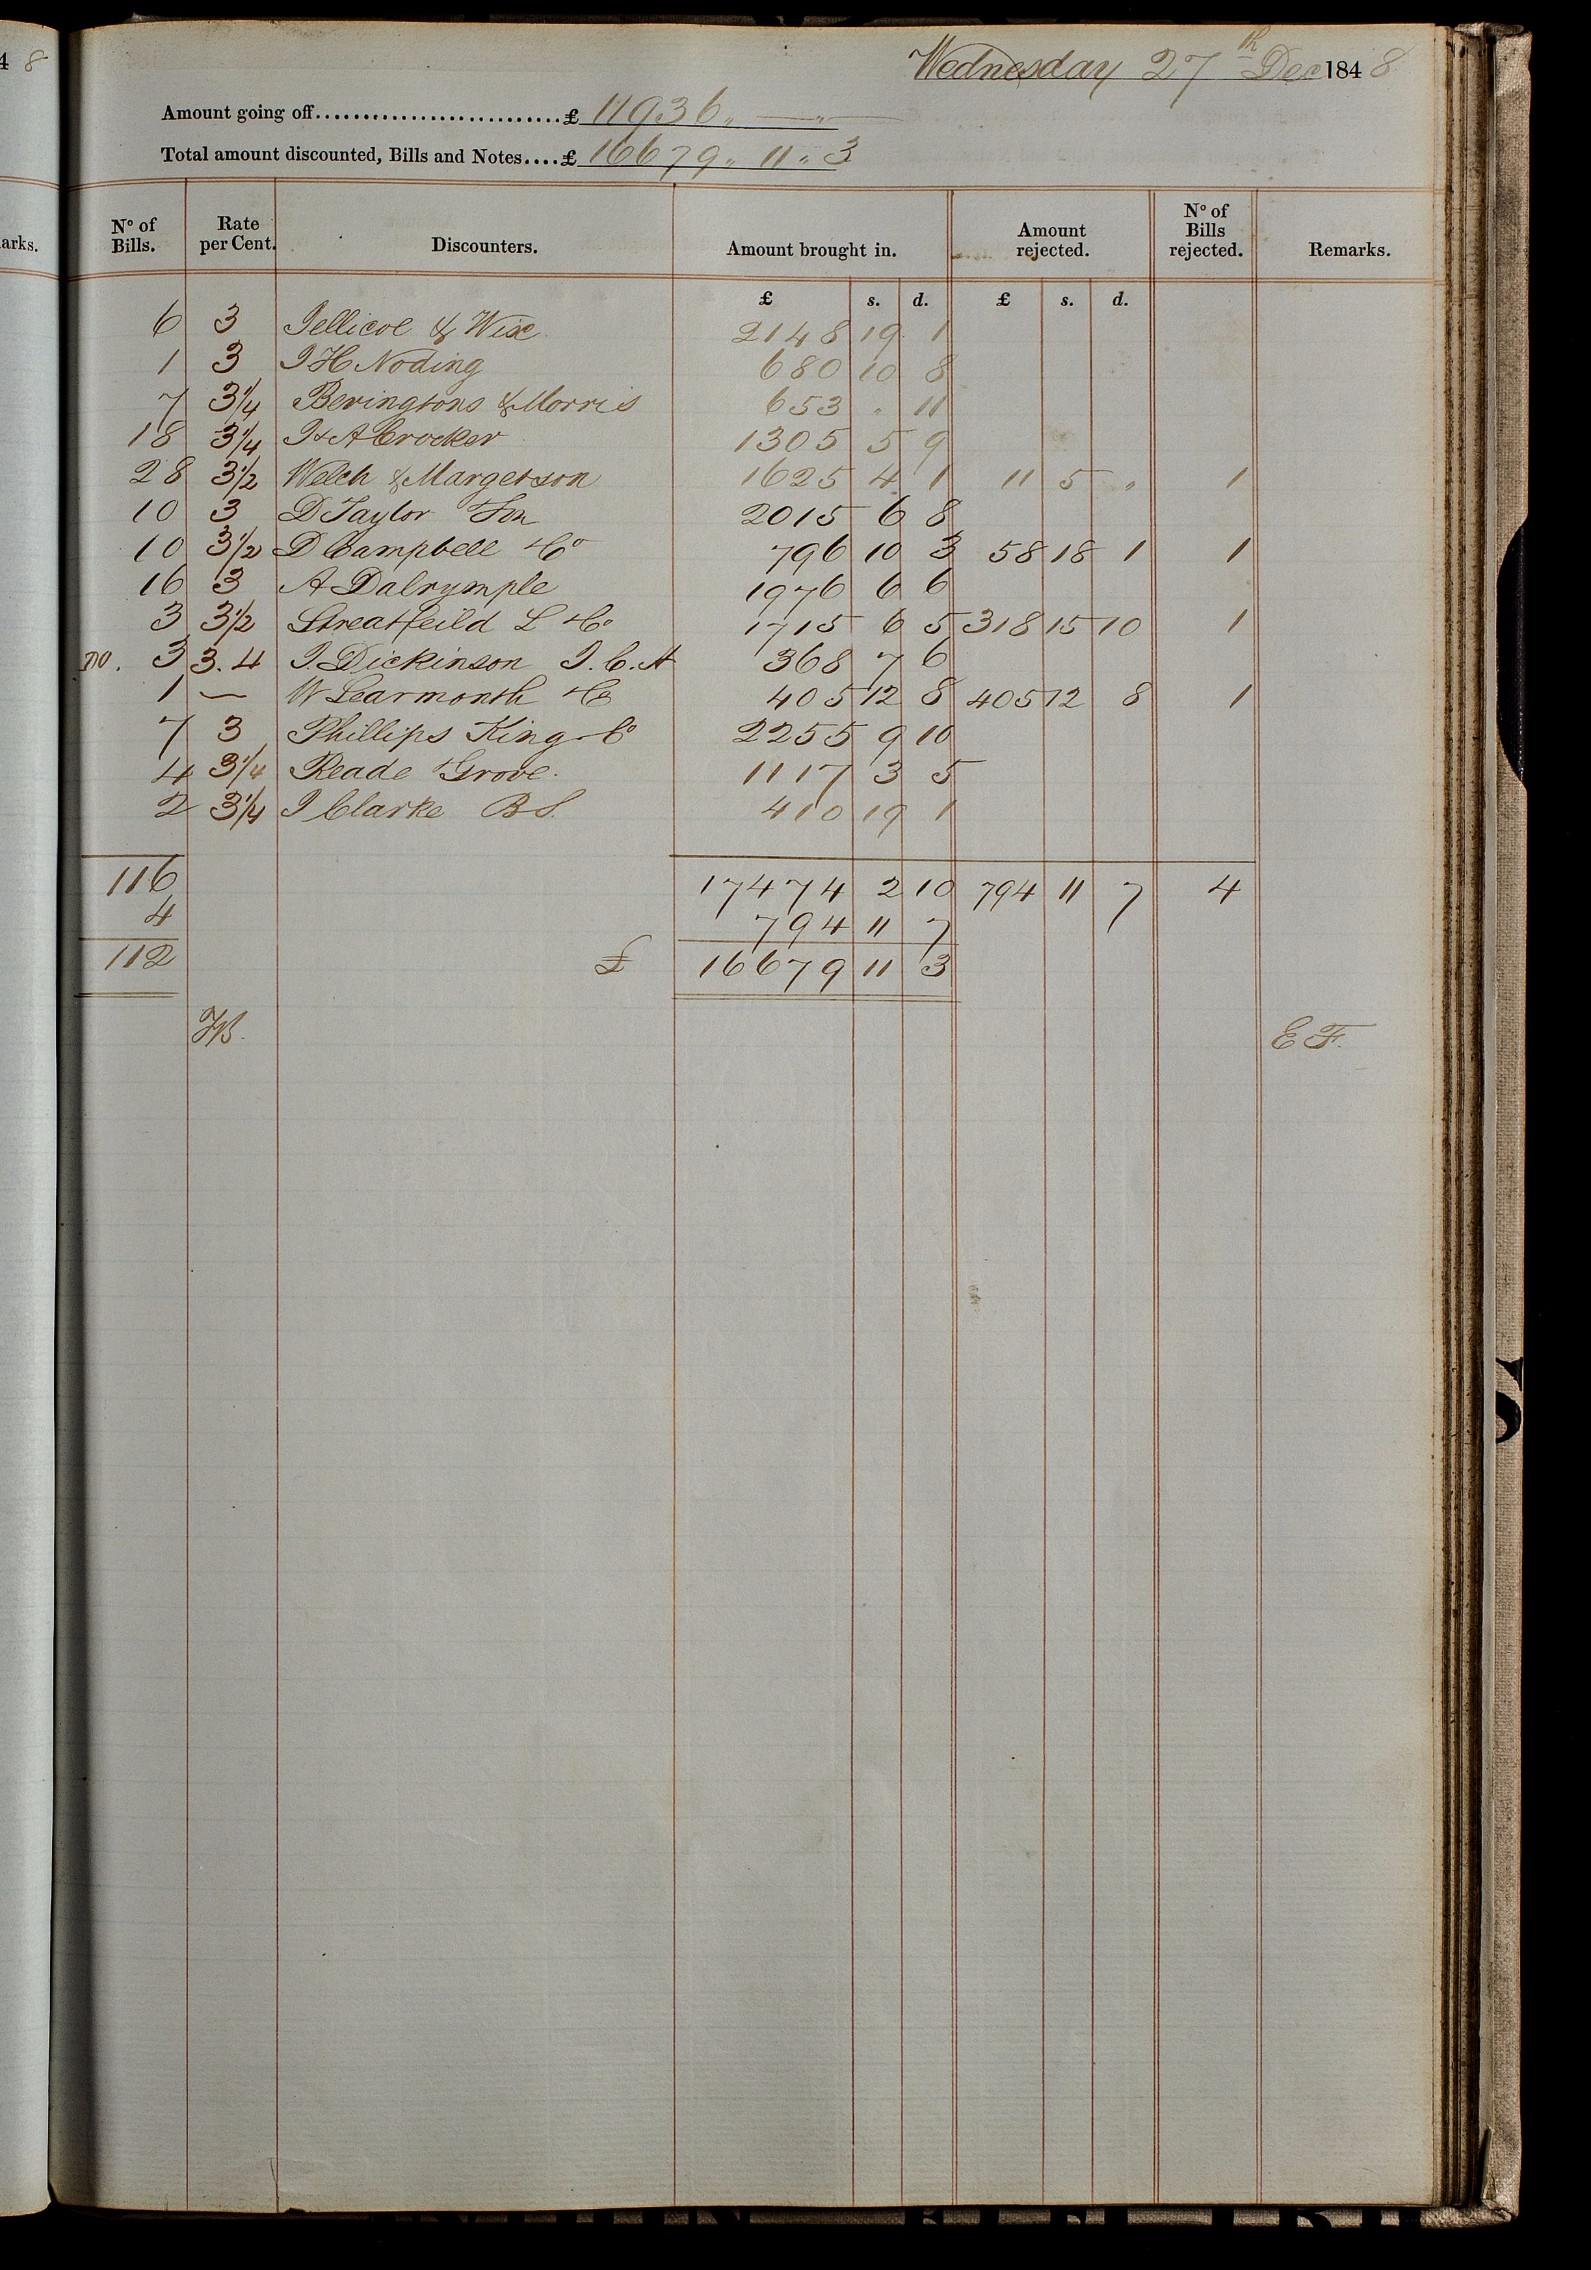 4 8
arks.
Wednesday 27th Dec 1848
Amount going off........................... £ 11936 „ — „ —
Total amount discounted, Bills and Notes.... £ 16679 „ 11 „ 3
No of Bills. Rate per Cent. Discounters. Amount brought in. Amount rejected. No of Bills rejected. Remarks.
£ s. d. £ s. d.
6 3 Jellicoe & Wix 2148 19 1
1 3 J H Noding 680 10 8
7 3 1/4 Beringtons & Morris 653 „ 11
18 3 1/4 J & A Crocker 1305 5 9
28 3 1/2 Welch & Margetson 1625 4 1 11 5 „ 1
10 3 D Taylor & Son 2015 6 8
10 3 1/2 D Campbell & Co 796 10 3 58 18 1 1
16 3 A Dalrymple 1976 6 6
3 3 1/2 Streatfeild L & Co 1715 6 5 318 15 10 1
no. 3 3.4 J. Dickinson J. C. A 368 7 6
1 — W Learmonth & Co 405 12 8 405 12 8 1
7 3 Phillips King & Co 2255 9 10
4 3 1/4 Reade & Grove. 1117 3 5
2 3 1/4 J Clarke B S. 410 19 1
116 17474 2 10 794 11 7 4
4 794 11 7
112 £ 16679 11 3
E F.